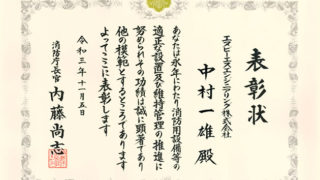 表彰状
エヌケイエスエンジニアリング株式会社
中村一雄 殿
あなたは永年にわたり消防用設備等の
適正な設置及び維持管理の推進に
努められその功績は誠に顕著であり
他の模範とするところであります
よってここに表彰します
令和三年十一月五日
消防庁長官 内藤尚志